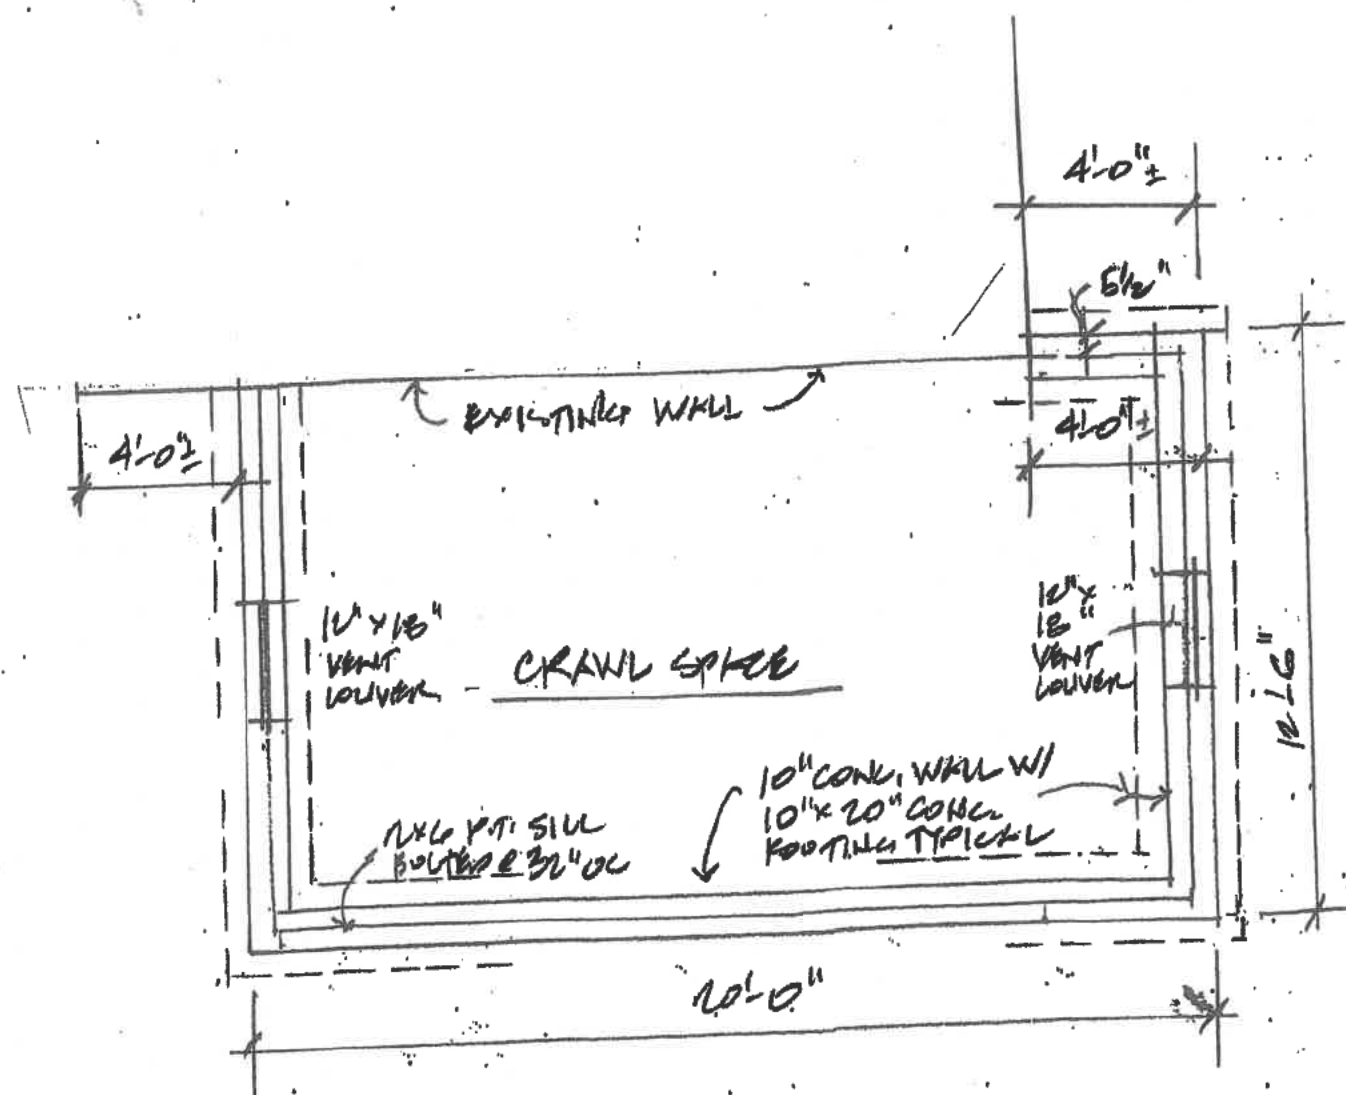 4'-0"±
5½"
EXISTING WALL
4'-0"±
4'-0"±
12" x 18"
VENT
LOUVER
CRAWL SPACE
12" x
18"
VENT
LOUVER
12'-6"
10" CONC. WALL W/
10" x 20" CONC.
FOOTING TYPICAL
2x6 P.T. SILL
BOLTED @ 32" OC
20'-0"